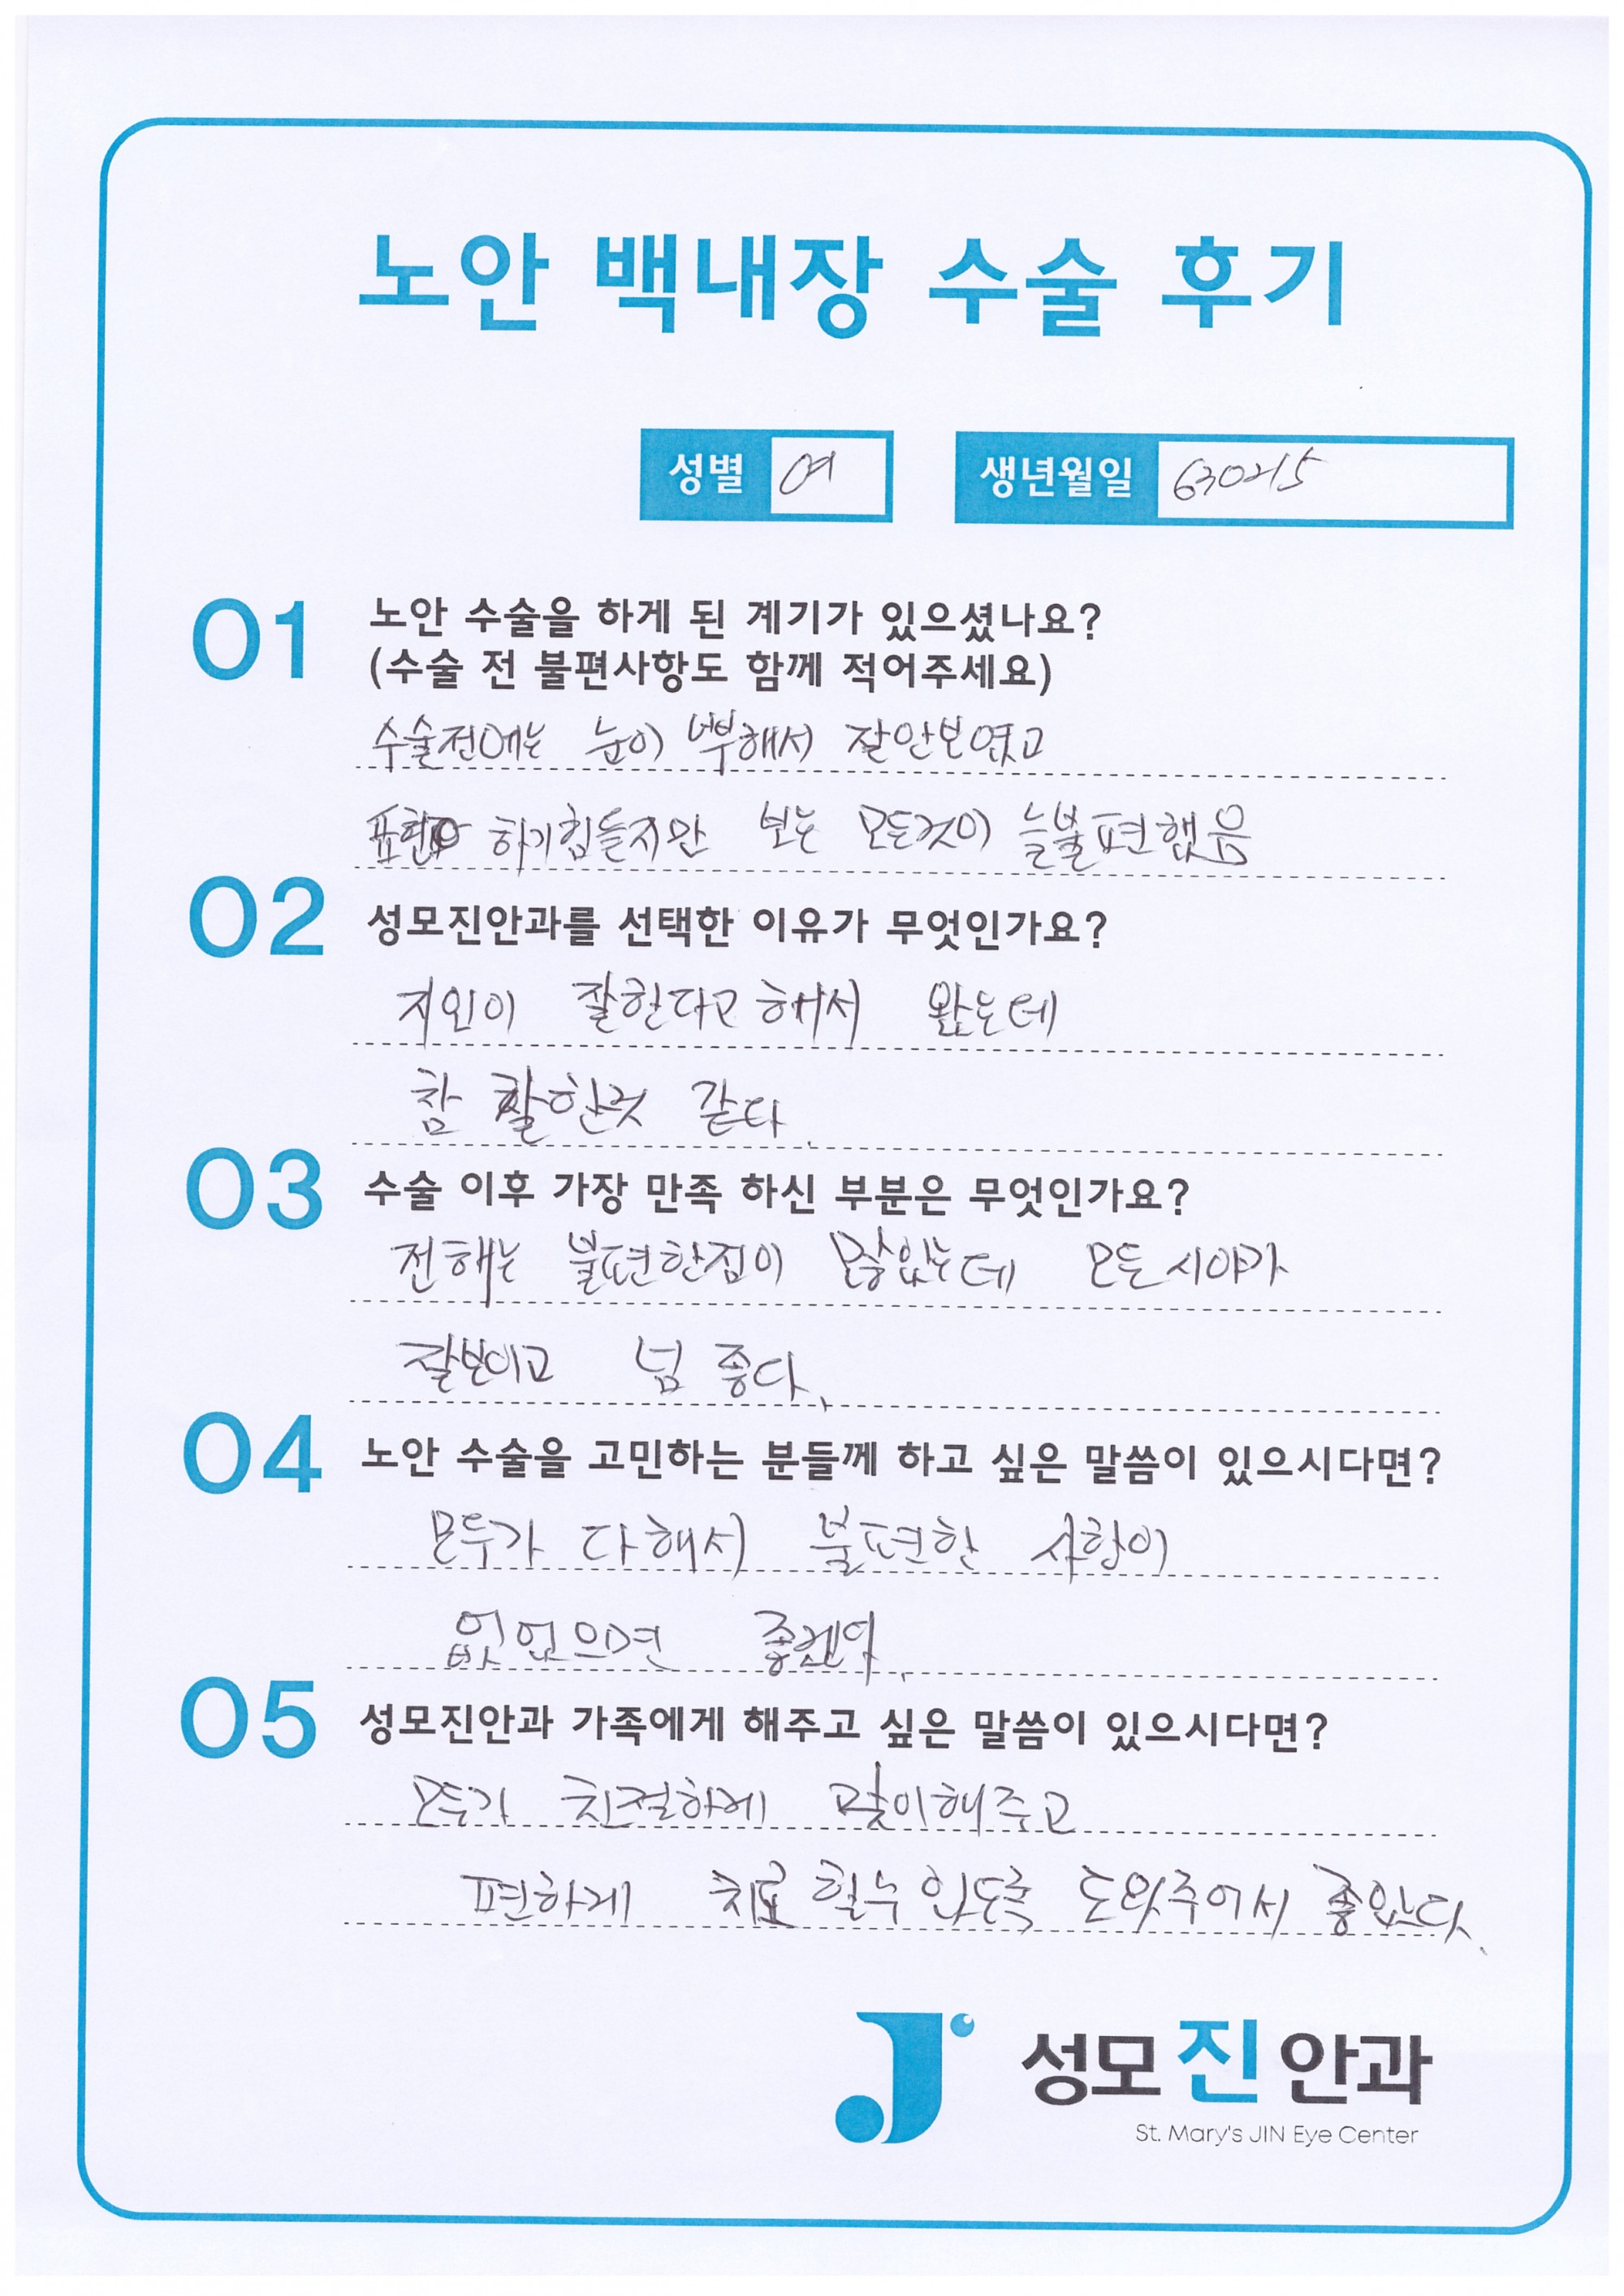 노안 백내장 수술 후기
성별 여 생년월일 630215
01 노안 수술을 하게 된 계기가 있으셨나요?
(수술 전 불편사항도 함께 적어주세요)
수술전에는 눈이 뿌해서 잘안보였고
표현 하기힘들지만 보는 모든것이 늘불편했음
02 성모진안과를 선택한 이유가 무엇인가요?
지인이 잘한다고 해서 왔는데
참 잘한것 같다.
03 수술 이후 가장 만족 하신 부분은 무엇인가요?
전해는 불편한점이 많았는데 모든시야가
잘보이고 넘 좋다.
04 노안 수술을 고민하는 분들께 하고 싶은 말씀이 있으시다면?
모두가 다해서 불편한 사항이
없었으면
05 성모진안과 가족에게 해주고 싶은 말씀이 있으시다면?
모두가 친절하게 맞이해주고
편하게 치료 할수 있도록 도와주어서 좋았다.
성모진안과
St. Mary's JIN Eye Center